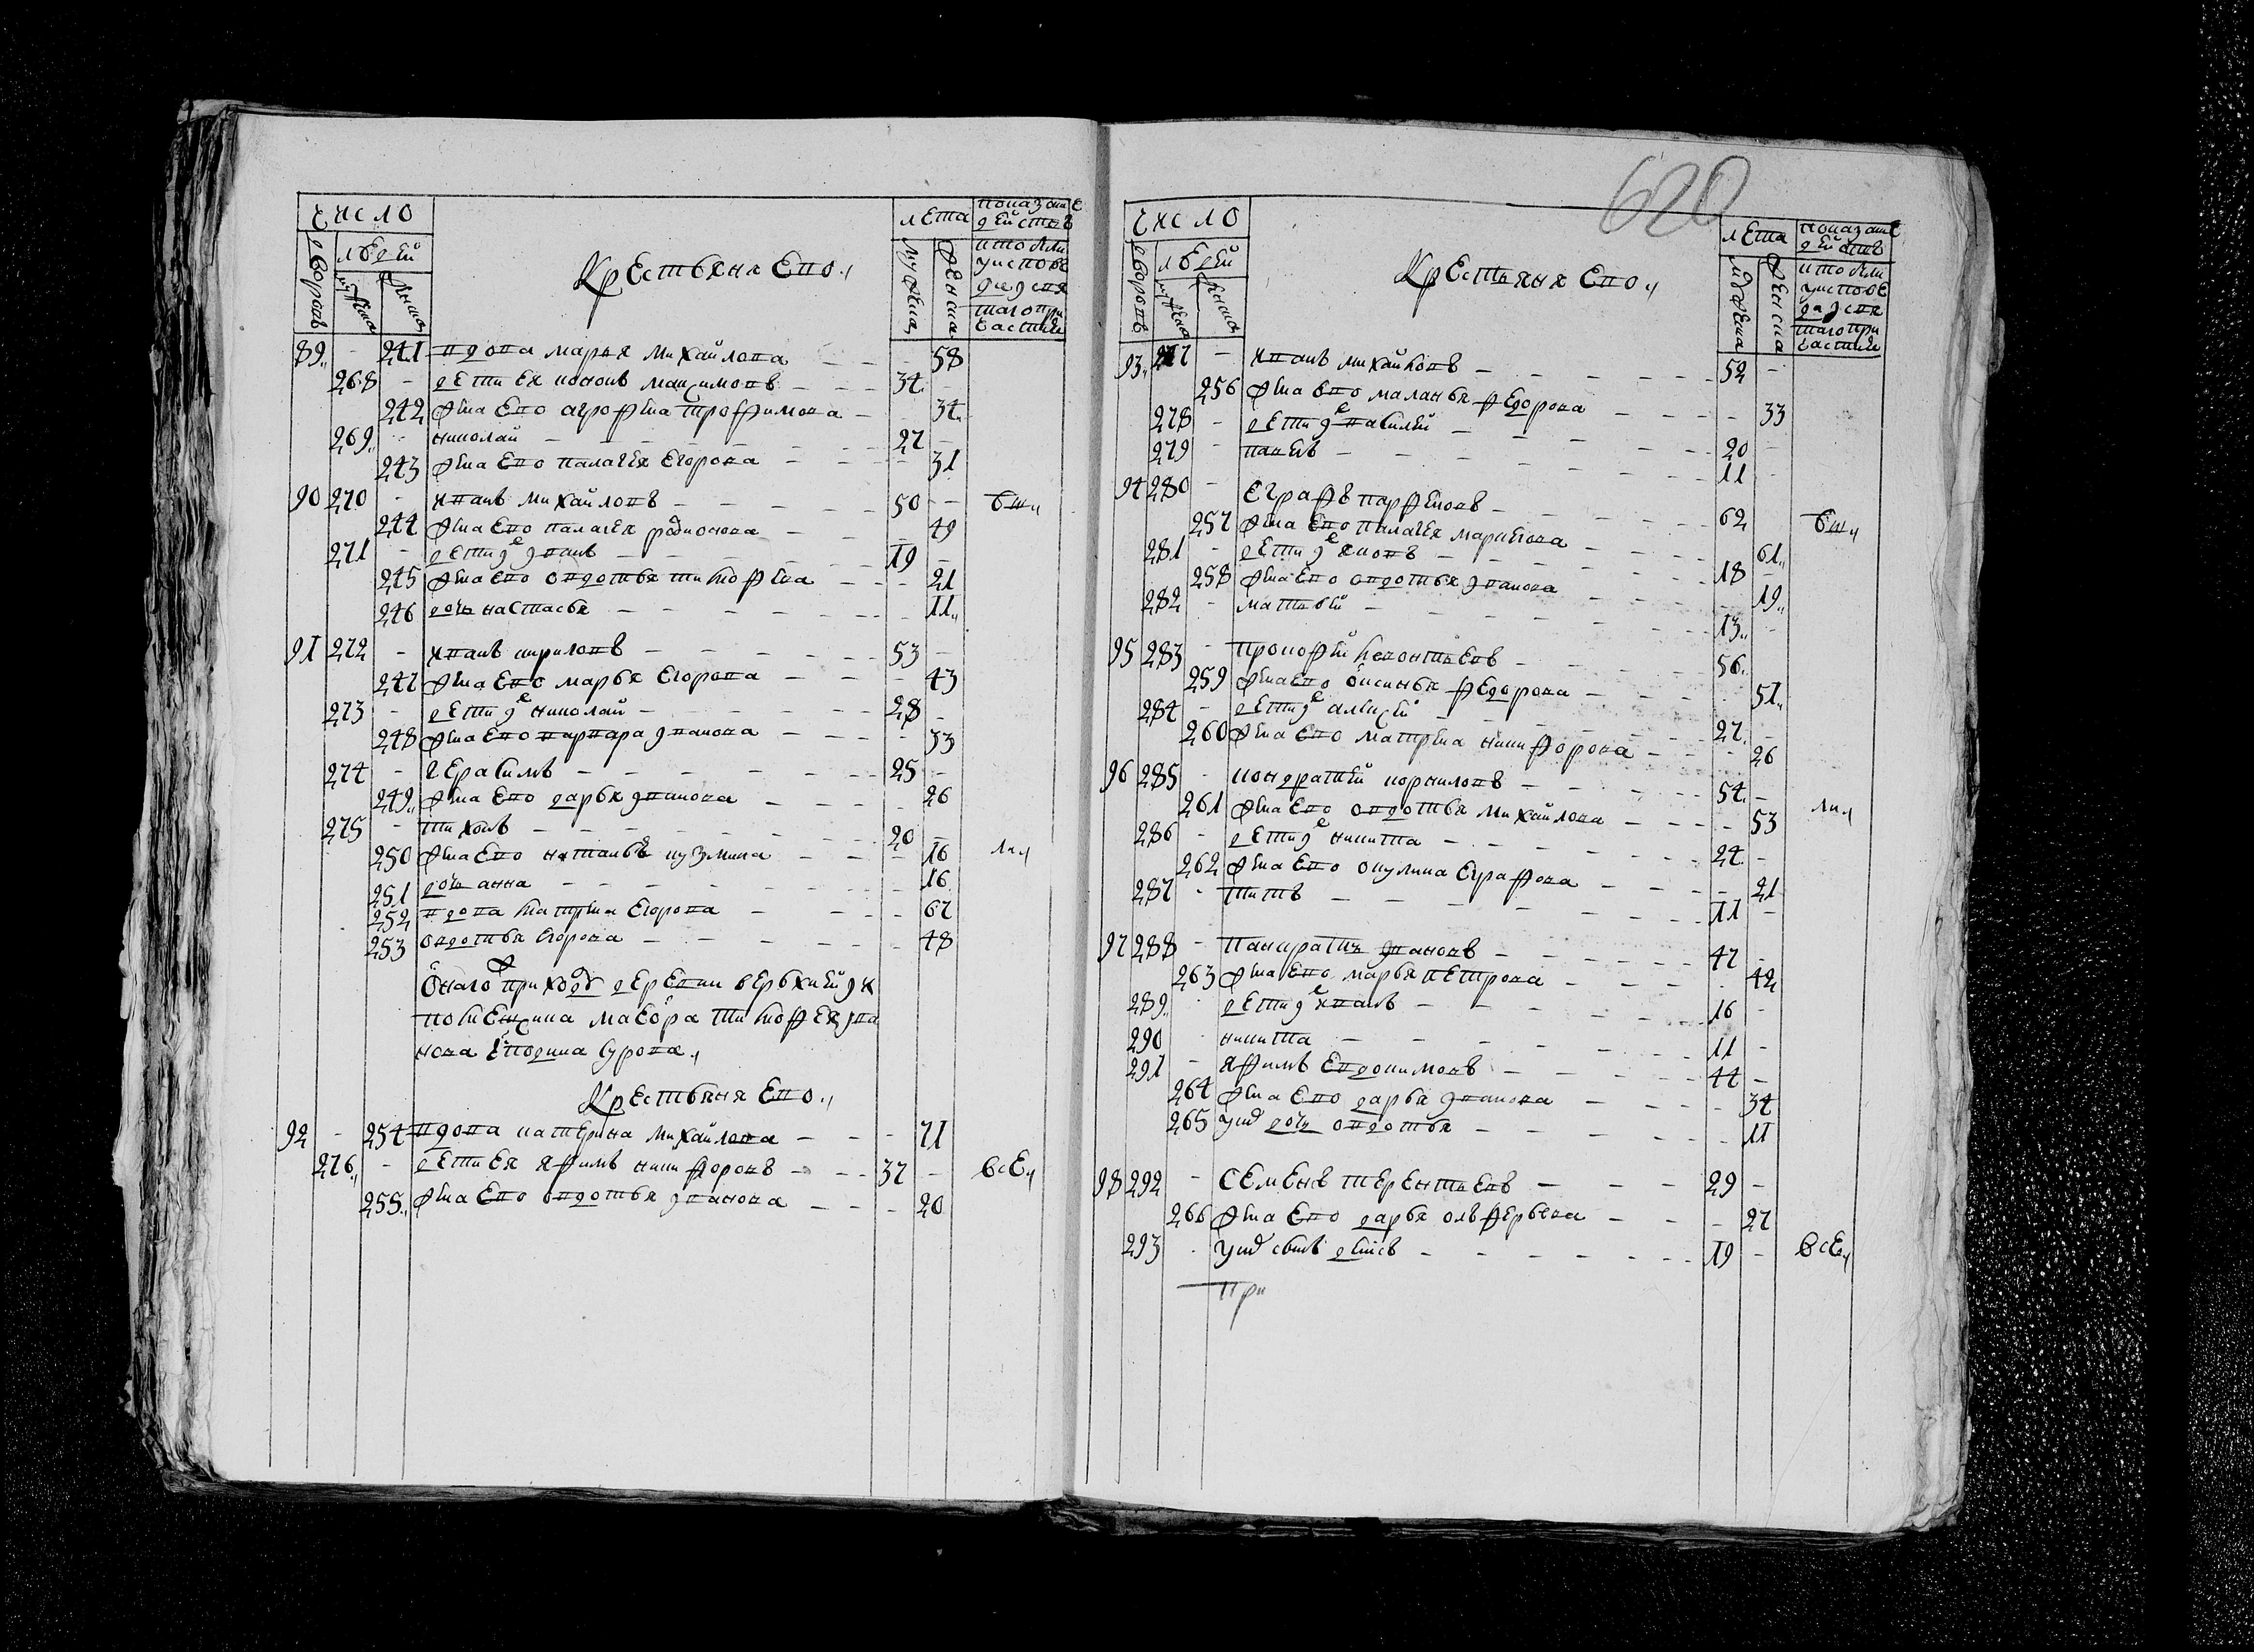 число
дворовъ
людей
мужеска
женска
Крестьяня ево
лета
мужеска
женска
показание
действъ
89 241 вдова марья михайлова 58
268 дети ея кононъ максимовъ 34
242 жена ево агрофена трофимова 34
269 николай 27
243 жена ево палагея егорова 31
90 270 иванъ михайловъ 50 бы
244 жена ево палагея родионова 49
271 дети их иванъ 19
245 жена ево овдотья тимофеева 21
246 дочь настасья 11
91 272 иванъ кириловъ 53
247 жена ево марья егорова 43
273 дети их николай 28
248 жена ево варвара иванова 33
274 герасимъ 25
249 жена ево дарья иванова 26
275 тихонъ 20
250 жена ево наталья кузмина 16
251 дочь анна 16
252 вдова катерина егорова 67
253 овдотья егорова 48
Онаго ж приходу деревни
помещика маеора тимофея ива
нова сурова
Крестьяня ево
92 254 вдова катерина михайлова 71
276 дети ея яфимъ никифоровъ 37 все
255 жена ево овдотья иванова 20
620
число
дворовъ
людей
мужеска
женска
Крестьяня ево
лета
мужеска
женска
показание
действъ
93 277 иванъ михайловъ 52
256 жена ево маланья федорова 33
278 дети их василей 20
279 павелъ 11
94 280 еграфъ парфеновъ 62 бы
257 жена ево палагея маркелова 61
281 дети их яковъ 18
258 жена ево овдотья иванова 19
282 матвей 13
95 283 прокофей леонтьевъ 56
259 жена ево оксинья федорова 51
284 дети их алексей 27
260 жена ево матрена никифорова 26
96 285 кондратей корниловъ 54
261 жена ево овдотья михайлова 53
286 дети их никита 24
262 жена ево окулина еграфова 21
287 титъ 11
97 288 панкратъ ивановъ 47
263 жена ево марья петрова 42
289 дети их иванъ 16
290 никита 11
291 яфимъ евдокимовъ 44
264 жена ево дарья иванова 34
265 у них дочь овдотья 11
98 292 семенъ терентьевъ 29
266 жена ево дарья олферьева 27
293 у них сынъ 19 все
при